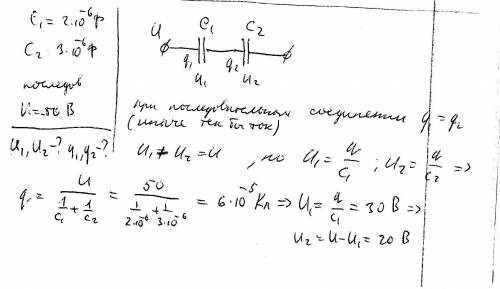 C₁ = 2·10⁻⁶ ф
C₂ = 3·10⁻⁶ ф
последов
U = 50 В
U₁, U₂ - ? q₁, q₂ - ?
U C₁ C₂
q₁ q₂
U₁ U₂
при последовательном соединении q₁ = q₂
(иначе тек бы ток)
U₁ + U₂ = U , но U₁ = q/C₁ ; U₂ = q/C₂ =>
q = U/(1/C₁ + 1/C₂) = 50/(1/2·10⁻⁶ + 1/3·10⁻⁶) = 6·10⁻⁵ Кл => U₁ = q/C₁ = 30 В =>
U₂ = U - U₁ = 20 В